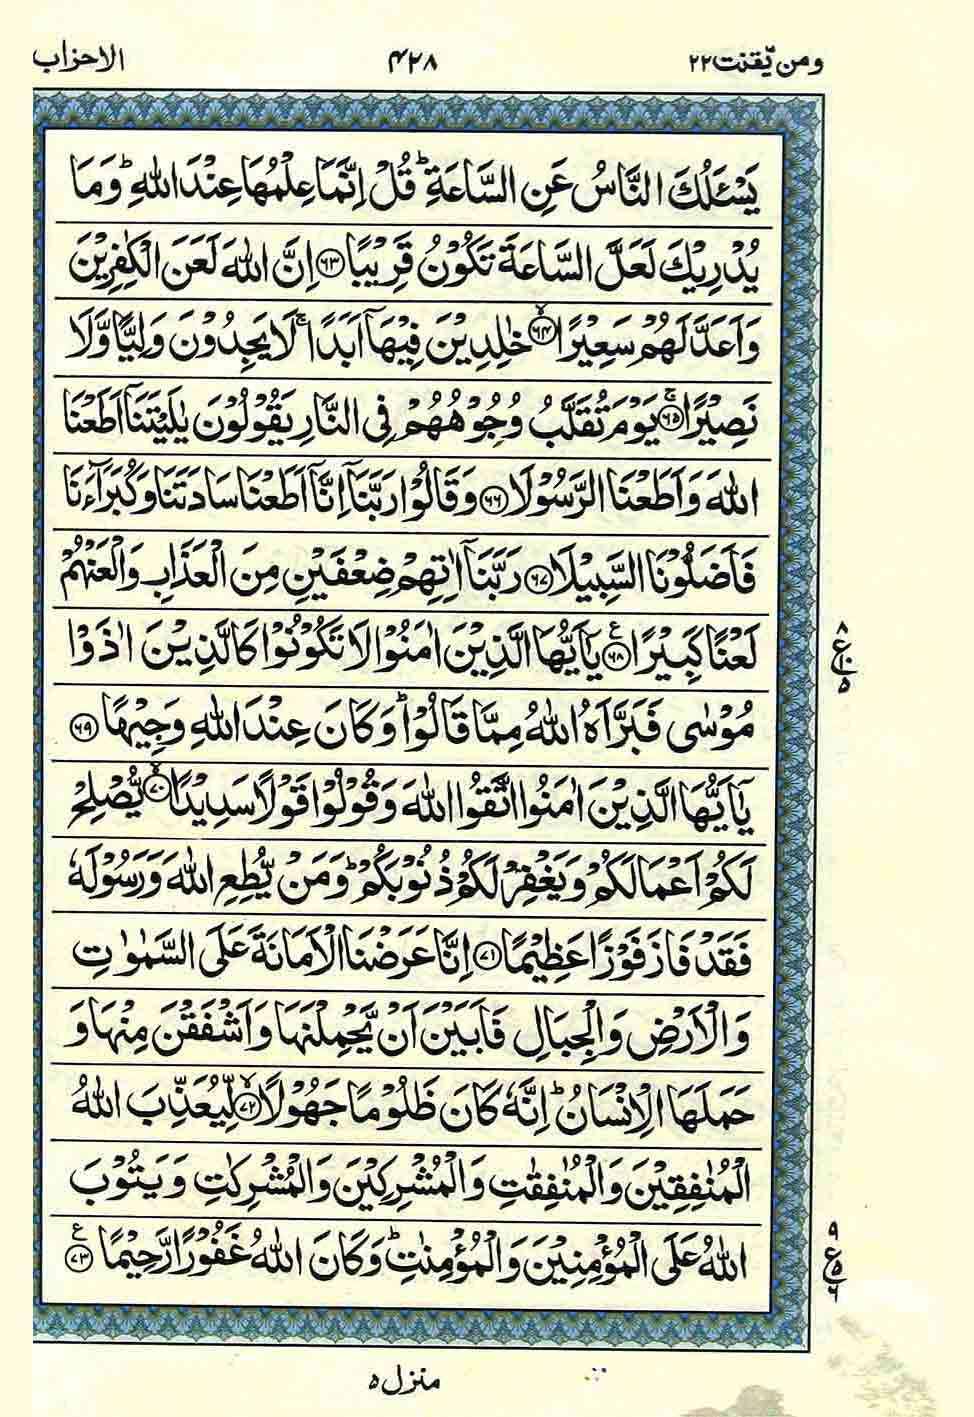 ومن یّقنت ۲۲
۴۲۸
الاحزاب
یَسْـَٔلُكَ النَّاسُ عَنِ السَّاعَةِ ؕ قُلْ اِنَّمَا عِلْمُهَا عِنْدَ اللّٰهِ ؕ وَمَا
یُدْرِیْكَ لَعَلَّ السَّاعَةَ تَكُوْنُ قَرِیْبًا ﴿۶۳﴾ اِنَّ اللّٰهَ لَعَنَ الْكٰفِرِیْنَ
وَاَعَدَّ لَهُمْ سَعِیْرًا ﴿۶۴﴾ۙ خٰلِدِیْنَ فِیْهَاۤ اَبَدًا ۚ لَا یَجِدُوْنَ وَلِیًّا وَّلَا
نَصِیْرًا ﴿۶۵﴾ۚ یَوْمَ تُقَلَّبُ وُجُوْهُهُمْ فِی النَّارِ یَقُوْلُوْنَ یٰلَیْتَنَاۤ اَطَعْنَا
اللّٰهَ وَاَطَعْنَا الرَّسُوْلَا ﴿۶۶﴾ وَقَالُوْا رَبَّنَاۤ اِنَّاۤ اَطَعْنَا سَادَتَنَا وَكُبَرَآءَنَا
فَاَضَلُّوْنَا السَّبِیْلَا ﴿۶۷﴾ رَبَّنَاۤ اٰتِهِمْ ضِعْفَیْنِ مِنَ الْعَذَابِ وَالْعَنْهُمْ
لَعْنًا كَبِیْرًا ﴿۶۸﴾ع یٰۤاَیُّهَا الَّذِیْنَ اٰمَنُوْا لَا تَكُوْنُوْا كَالَّذِیْنَ اٰذَوْا
۸
ع
۱۰
۵
مُوْسٰی فَبَرَّاَهُ اللّٰهُ مِمَّا قَالُوْا ؕ وَكَانَ عِنْدَ اللّٰهِ وَجِیْهًا ﴿۶۹﴾
یٰۤاَیُّهَا الَّذِیْنَ اٰمَنُوا اتَّقُوا اللّٰهَ وَقُوْلُوْا قَوْلًا سَدِیْدًا ﴿۷۰﴾ۙ یُّصْلِحْ
لَكُمْ اَعْمَالَكُمْ وَیَغْفِرْ لَكُمْ ذُنُوْبَكُمْ ؕ وَمَنْ یُّطِعِ اللّٰهَ وَرَسُوْلَهٗ
فَقَدْ فَازَ فَوْزًا عَظِیْمًا ﴿۷۱﴾ اِنَّا عَرَضْنَا الْاَمَانَةَ عَلَی السَّمٰوٰتِ
وَالْاَرْضِ وَالْجِبَالِ فَاَبَیْنَ اَنْ یَّحْمِلْنَهَا وَاَشْفَقْنَ مِنْهَا وَ
حَمَلَهَا الْاِنْسَانُ ؕ اِنَّهٗ كَانَ ظَلُوْمًا جَهُوْلًا ﴿۷۲﴾ۙ لِّیُعَذِّبَ اللّٰهُ
الْمُنٰفِقِیْنَ وَالْمُنٰفِقٰتِ وَالْمُشْرِكِیْنَ وَالْمُشْرِكٰتِ وَیَتُوْبَ
اللّٰهُ عَلَی الْمُؤْمِنِیْنَ وَالْمُؤْمِنٰتِ ؕ وَكَانَ اللّٰهُ غَفُوْرًا رَّحِیْمًا ﴿۷۳﴾ع
۹
ع
۵
۶
منزل ۵